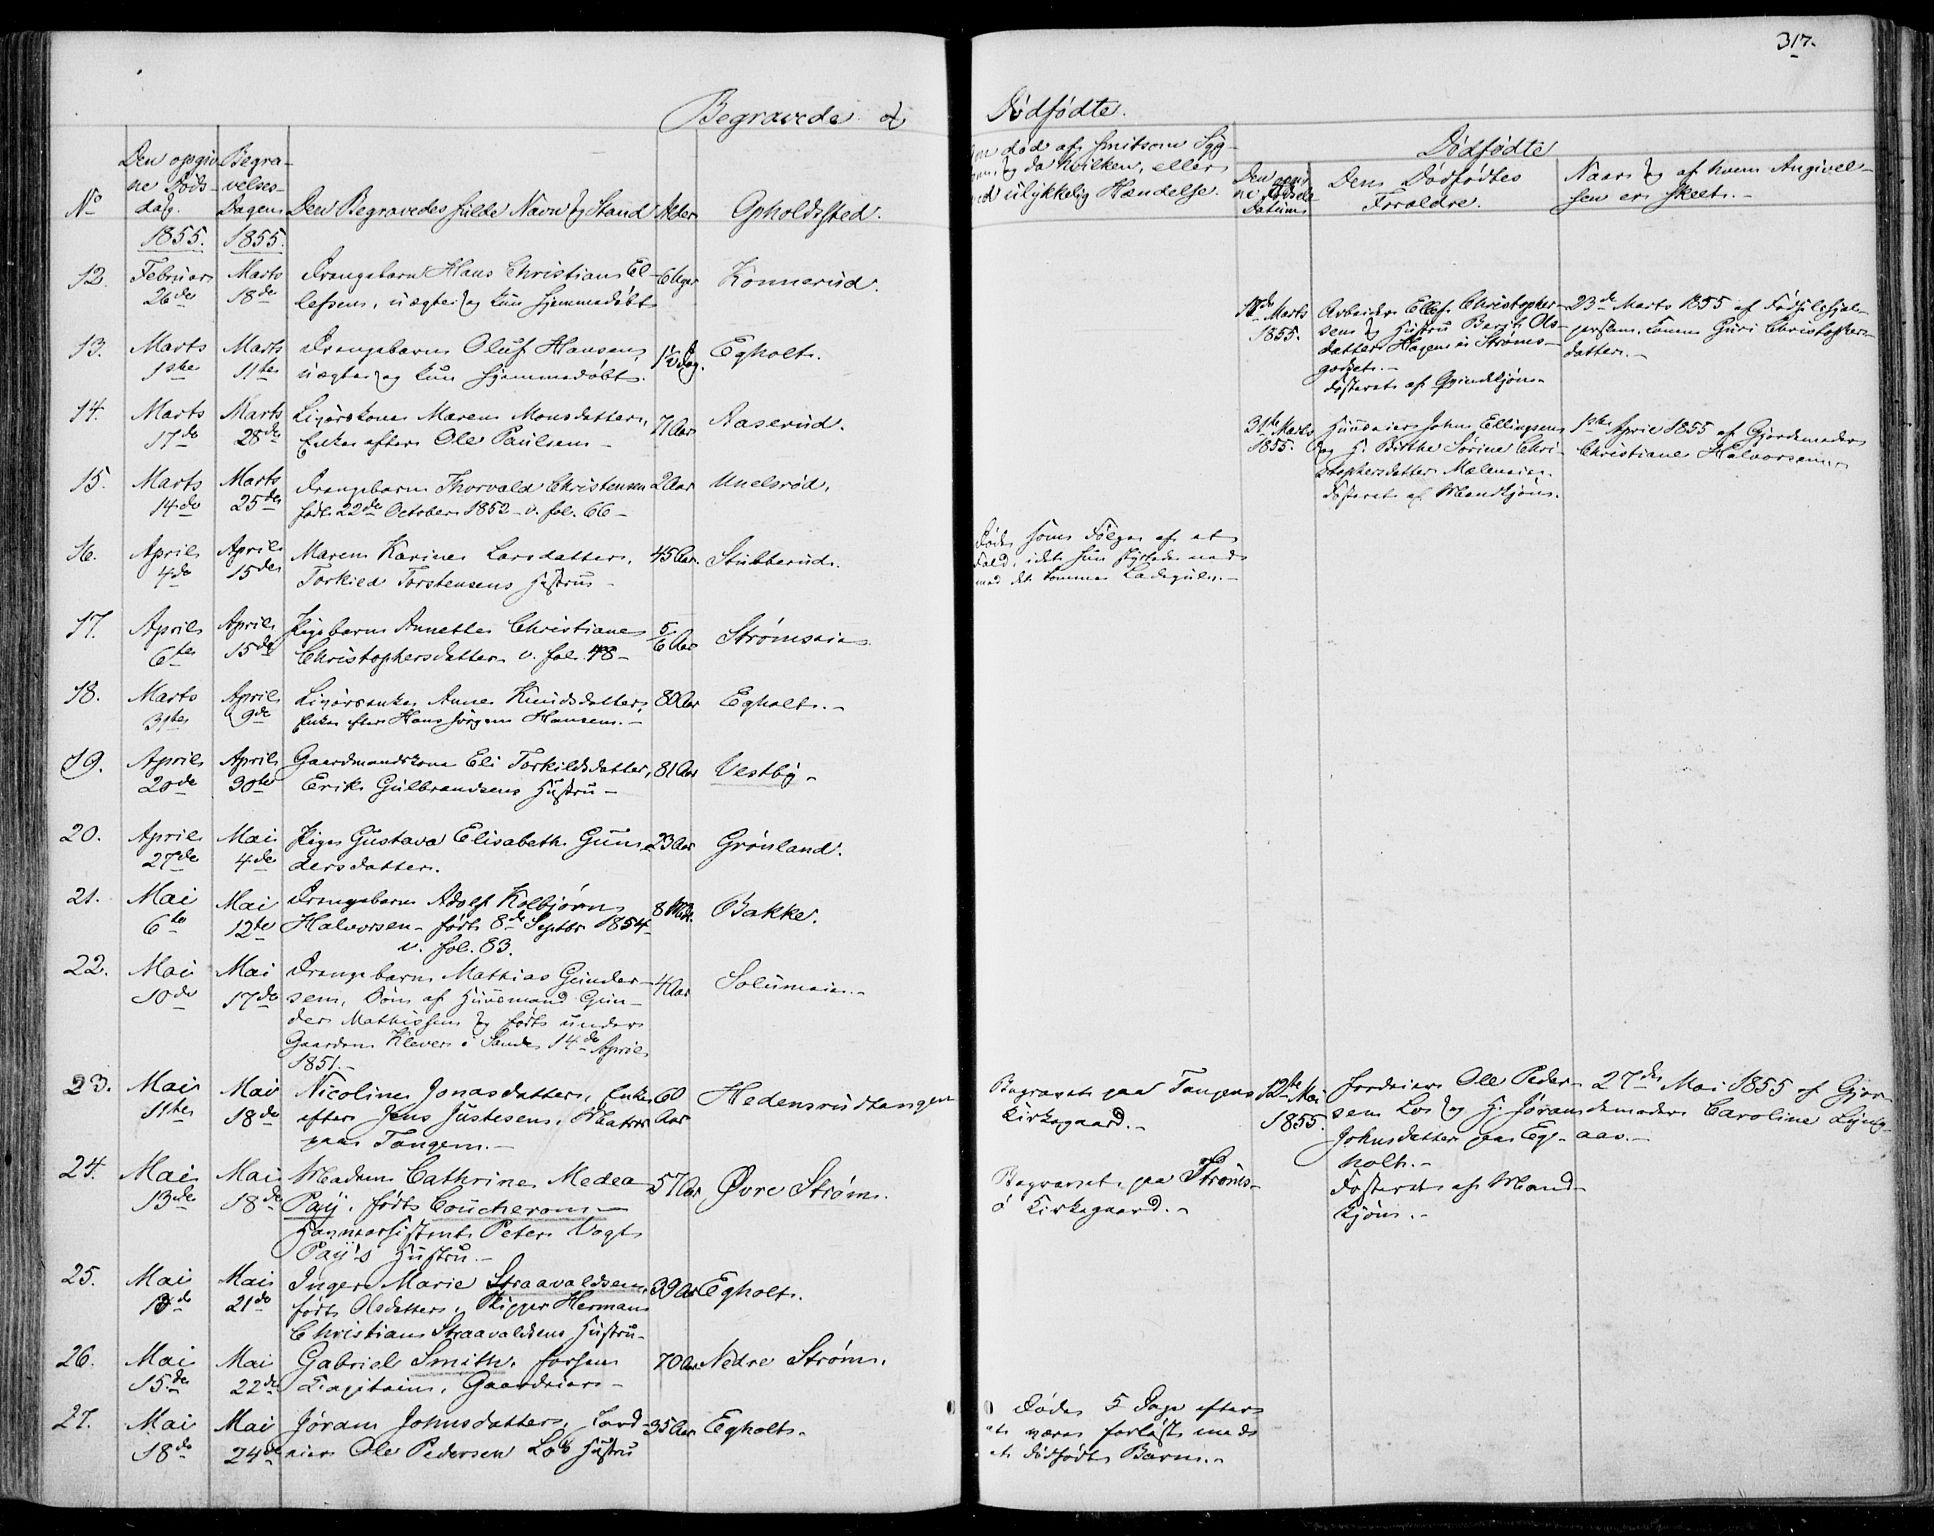 317.
Begravede &
Den opgiv-
ne Døds-
dag.
Begra-
velses-
Dagen
No
Den Begravedes fulde Navn og Stand
Alder
Opholdssted.
1855.
1855.
12.
Februar
26de
Marts
18de
Drengebarn Hans Christian El-
lefsen, uægte og kun hjemmedøbt
6 Uger
Konnerud.
13.
Marts
1ste
Marts
11te
Drengebarn Oluf Hansen,
uægte og kun hjemmedøbt.
1½ Dag.
Egholt.
14.
Marts
17de
Marts
28de
Maren Monsdatter,
Enke efter Ole Paulsen
71 Aar
Aaserud.
15.
Marts
14de
Marts
25de
Drengebarn Thorvald Christensen
født 22de October 1852 v. fol. 66
2 Aar
16.
April
4de
April
15de
Maren Karine Larsdatter,
Torkild Torstensens Hustru
45 Aar.
Stubberud.
17.
April
6te
April
15de
Pigebarn Annette Christiane
Christophersdatter v. fol. 48
5/6 Aar
Strømseie
18.
Marts
31te
April
9de
Anne Knudsdatter,
Enke efter Hans Jørgen Hansen.
80 Aar
Egholt.
19.
April
20de
April
30te
Gaardmandskone Eli Torkildsdatter,
Erik Gulbrandsens Hustru
81 Aar
Vestby
20.
April
27de
Mai
4de
Pige Gustava Elisabeth Gun-
dersdatter.
23 Aar
Grønland.
21.
Mai
6te
Mai
12te
Drengebarn Adolf Kolbjørn
Halvorsen født 8de Septbr 1854
v. fol. 83.
8 Mdr.
Bakke.
22.
Mai
10de
Mai
17de
Drengebarn Mathias Gunder-
sen, Søn af Huusmand Gun-
der Mathissen og født under
Gaarden Klever i Sande 14de April
1851.
4 Aar
Solumeie.
23.
Mai
11te
Mai
18de
Nicoline Jonasdatter, Enke
efter Jens Justesen, Matros
paa Tangen.
60
Aar
Hedensrudtangen
24.
Mai
13de
Mai
18de
Madam Cathrine Medea
Paÿ, født Coucheron
Peter Vogt
Paÿ's Hustru.
57 Aar
Øvre Strøm.
25.
Mai
13de
Mai
21de
Inger Marie Straavaldsen,
født Olsdatter, Skipper Herman
Christian Straavaldsens Hustru
39 Aar
Egholt.
26.
Mai
15de
Mai
22de
Gabriel Smith, forhen
Capitain, Gaardeier
70 Aar
Nedre Strøm.
27.
Mai
18de
Mai
24de
Jøran Johnsdatter, Jord-
eier Ole Pedersen Lo's Hustru
35 Aar
Egholt.
Dødfødte.
død af smitsom Syg-
og da hvilken, eller
ved ulykkelig Hændelse.
Dødfødte
Den opgiv-
ne Fødsels
Datum
Den Dødfødtes
Forældre.
Naar og af hvem Angivel-
sen er skeet.
Marts
1855.
Arbeider Ellef Christopher-
sen og Hustru Berit Ols-
datter Hagen i Strøms-
godset.
Fosteret af Qvindekjøn.
23de Marts 1855 af Fødselshjæl-
Guri Christophers-
datter.
31te Marts
1855.
Huuseier John Ellingsen
og H. Birthe Sørine Chri-
stophersdatter
Fosteret af Mandkjøn.
1ste April 1855 af Gjordemoder
Christiane Halvorsen
Døde som Følge af et
Fald, idet hun styrtede ned
12te Mai
1855.
Jordeier Ole Peder-
sen Lo og H. Jøran
Johnsdatter paa Eg-
holt.
Fosteret af Mand-
kjøn.
27de Mai 1855 af Gjor-
demoder Caroline Lyng-
aas.
Begravet paa Tangens
Kirkegaard.
Begravet paa Strøms-
ø Kirkegaard.
Døde 5 Dage efter
at være forløst med
et dødfødt Barn.